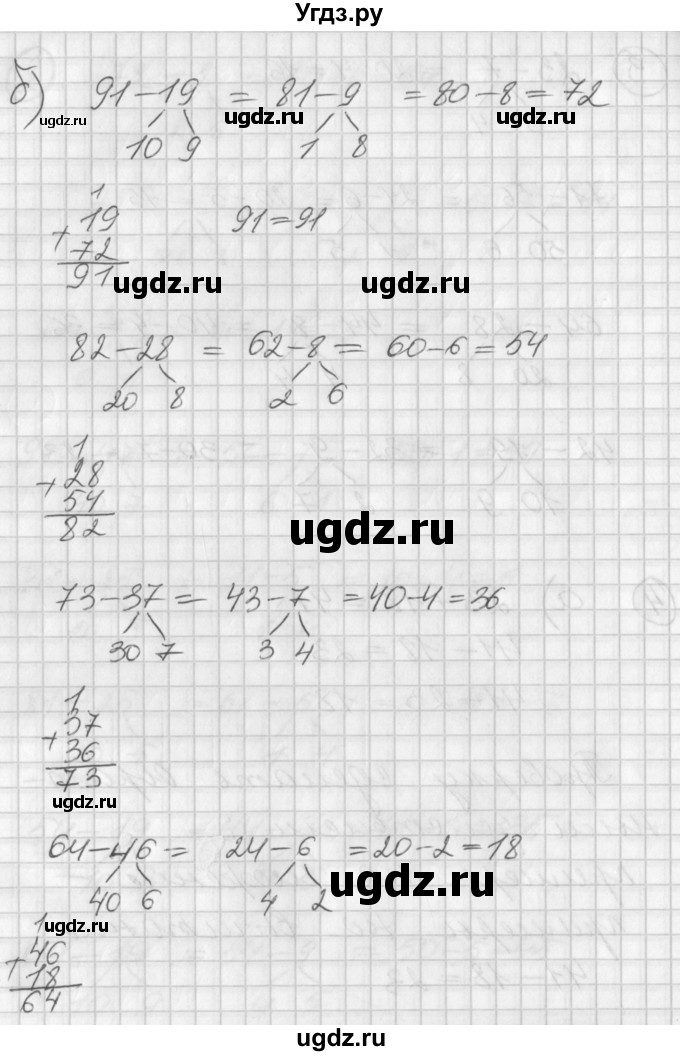 Угдз.ру
б) 91-19 = 81-9 = 80-8 = 72
10 9 1 8
ugdz.ru ugdz.ru ugdz.ru
1
+19 91=91
72
91
ugdz.ru ugdz.ru
82-28 = 62-8 = 60-6 = 54
20 8 2 6
1
+28
54
82
ugdz.ru
73-37 = 43-7 = 40-4 = 36
30 7 3 4
1
+37
36
73
ugdz.ru
64-46 = 24-6 = 20-2 = 18
40 6 4 2
ugdz.ru
1
+46
18
64
ugdz.ru